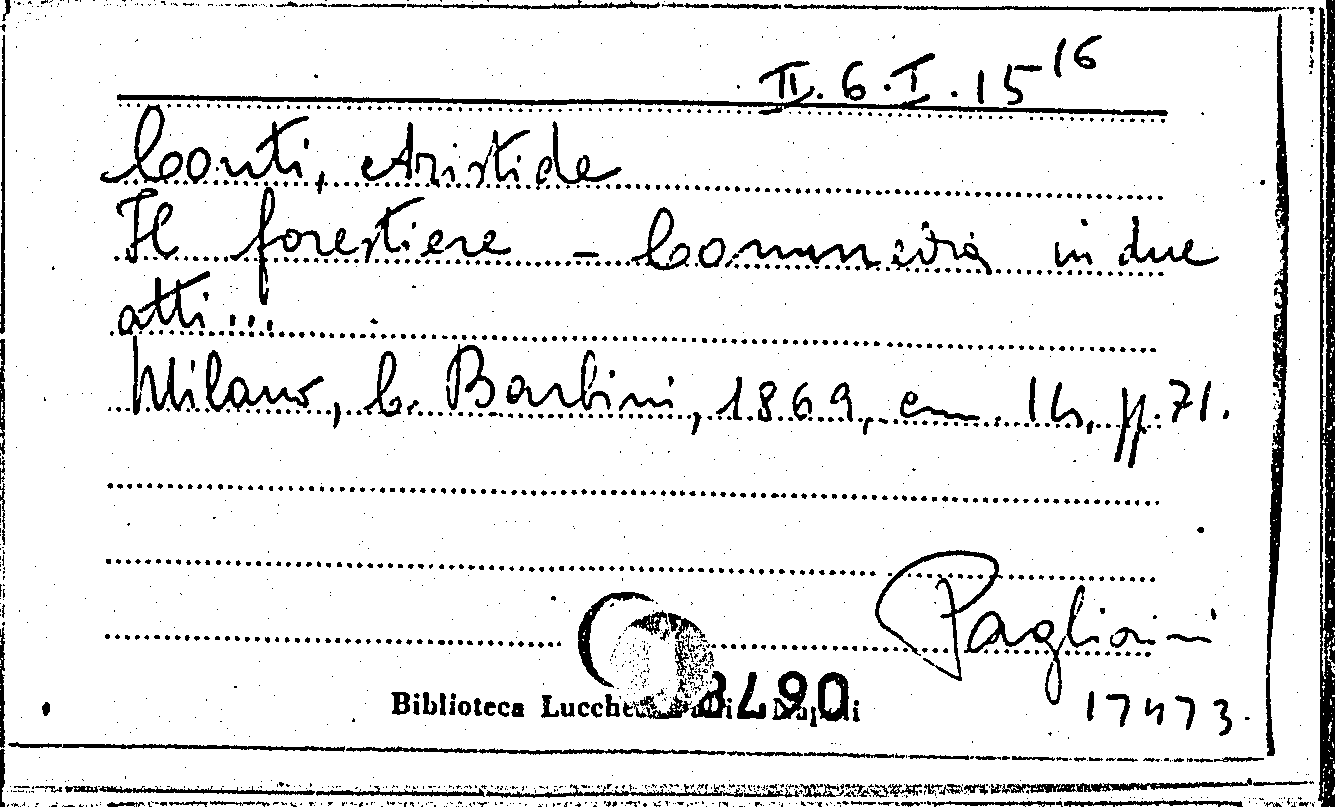 II.6.I.15 16
Conti, Aristide
Il forestiere - Commedia in due
atti...
Milano, C. Barbini, 1869, cm. 16, pp. 71.
Pagliaini
Biblioteca Lucchesi Palli - Napoli
17473.